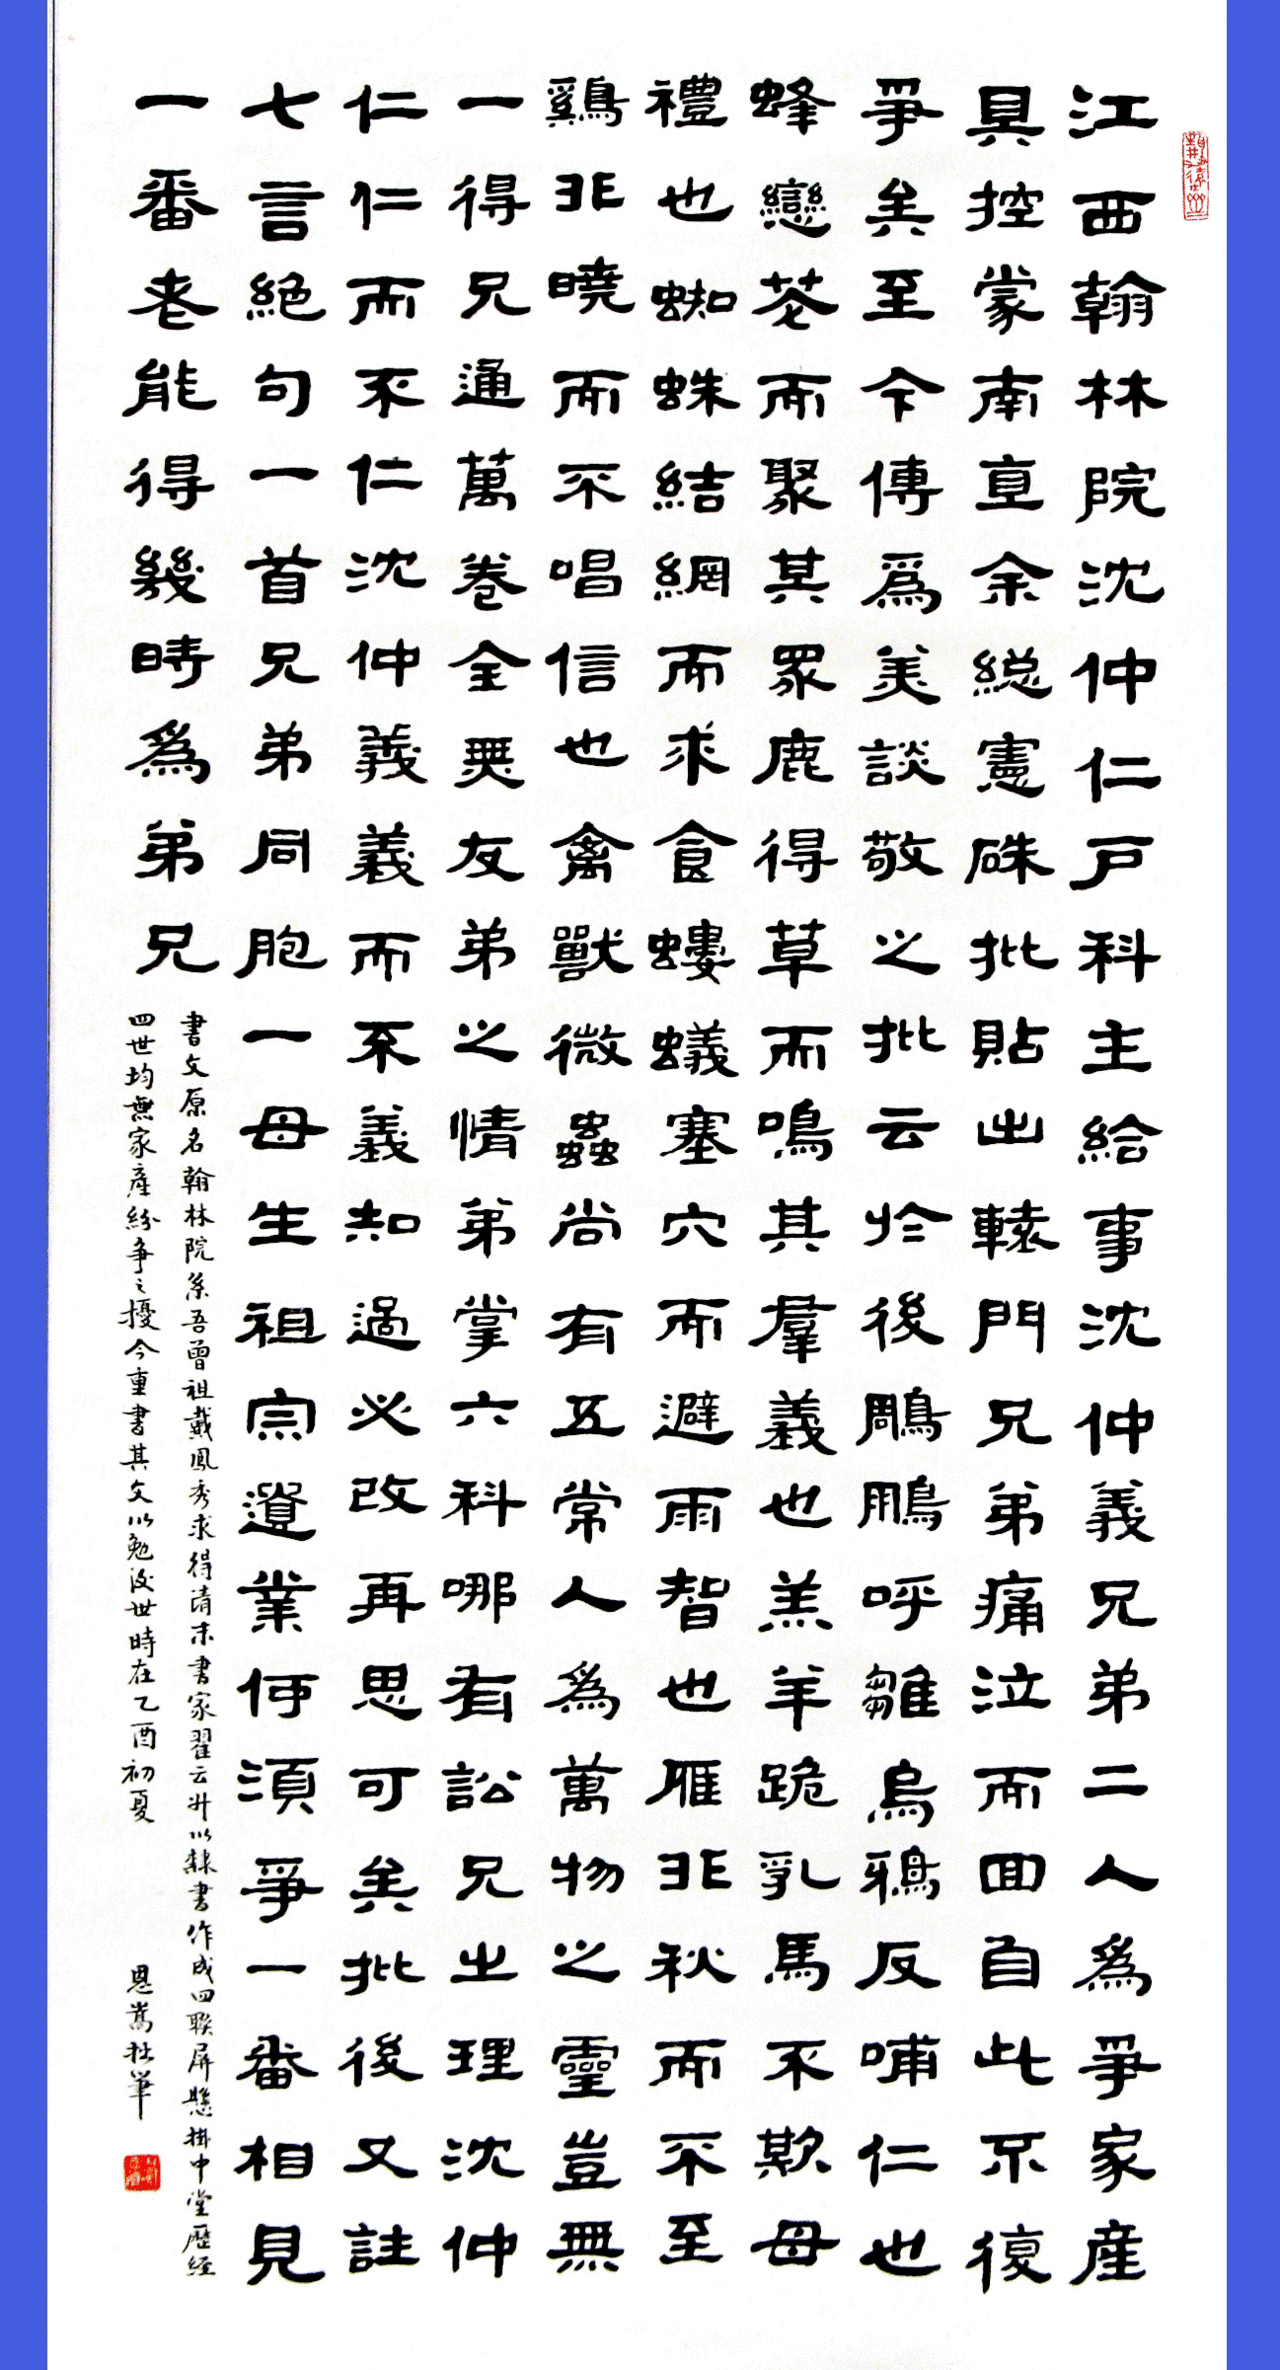 江西翰林院沈仲仁戶科主給事沈仲義兄弟二人爲爭家產
具控蒙南直余総憲硃批貼出轅門兄弟痛泣而回自此不復
爭矣至今傳爲美談敬之批云於後鵰鵬呼雛烏鴉反哺仁也
蜂戀花而聚其眾鹿得草而鳴其羣義也羔羊跪乳馬不欺母
禮也蜘蛛結網而求食螻蟻塞穴而避雨智也雁非秋而不至
鷄非曉而不唱信也禽獸微蟲尚有五常人爲萬物之靈豈無
一得兄通萬卷全無友弟之情弟掌六科哪有訟兄之理沈仲
仁仁而不仁沈仲義義而不義知過必改再思可矣批後又註
七言絕句一首兄弟同胞一母生祖宗遺業何須爭一番相見
一番老能得幾時爲弟兄
書文原名翰林院系吾曾祖戴鳳秀求得清末書家翟云升以隸書作成四聯屏懸掛中堂歷經
四世均無家產紛爭之擾今重書其文以勉後世時在乙酉初夏
恩嵩拙筆